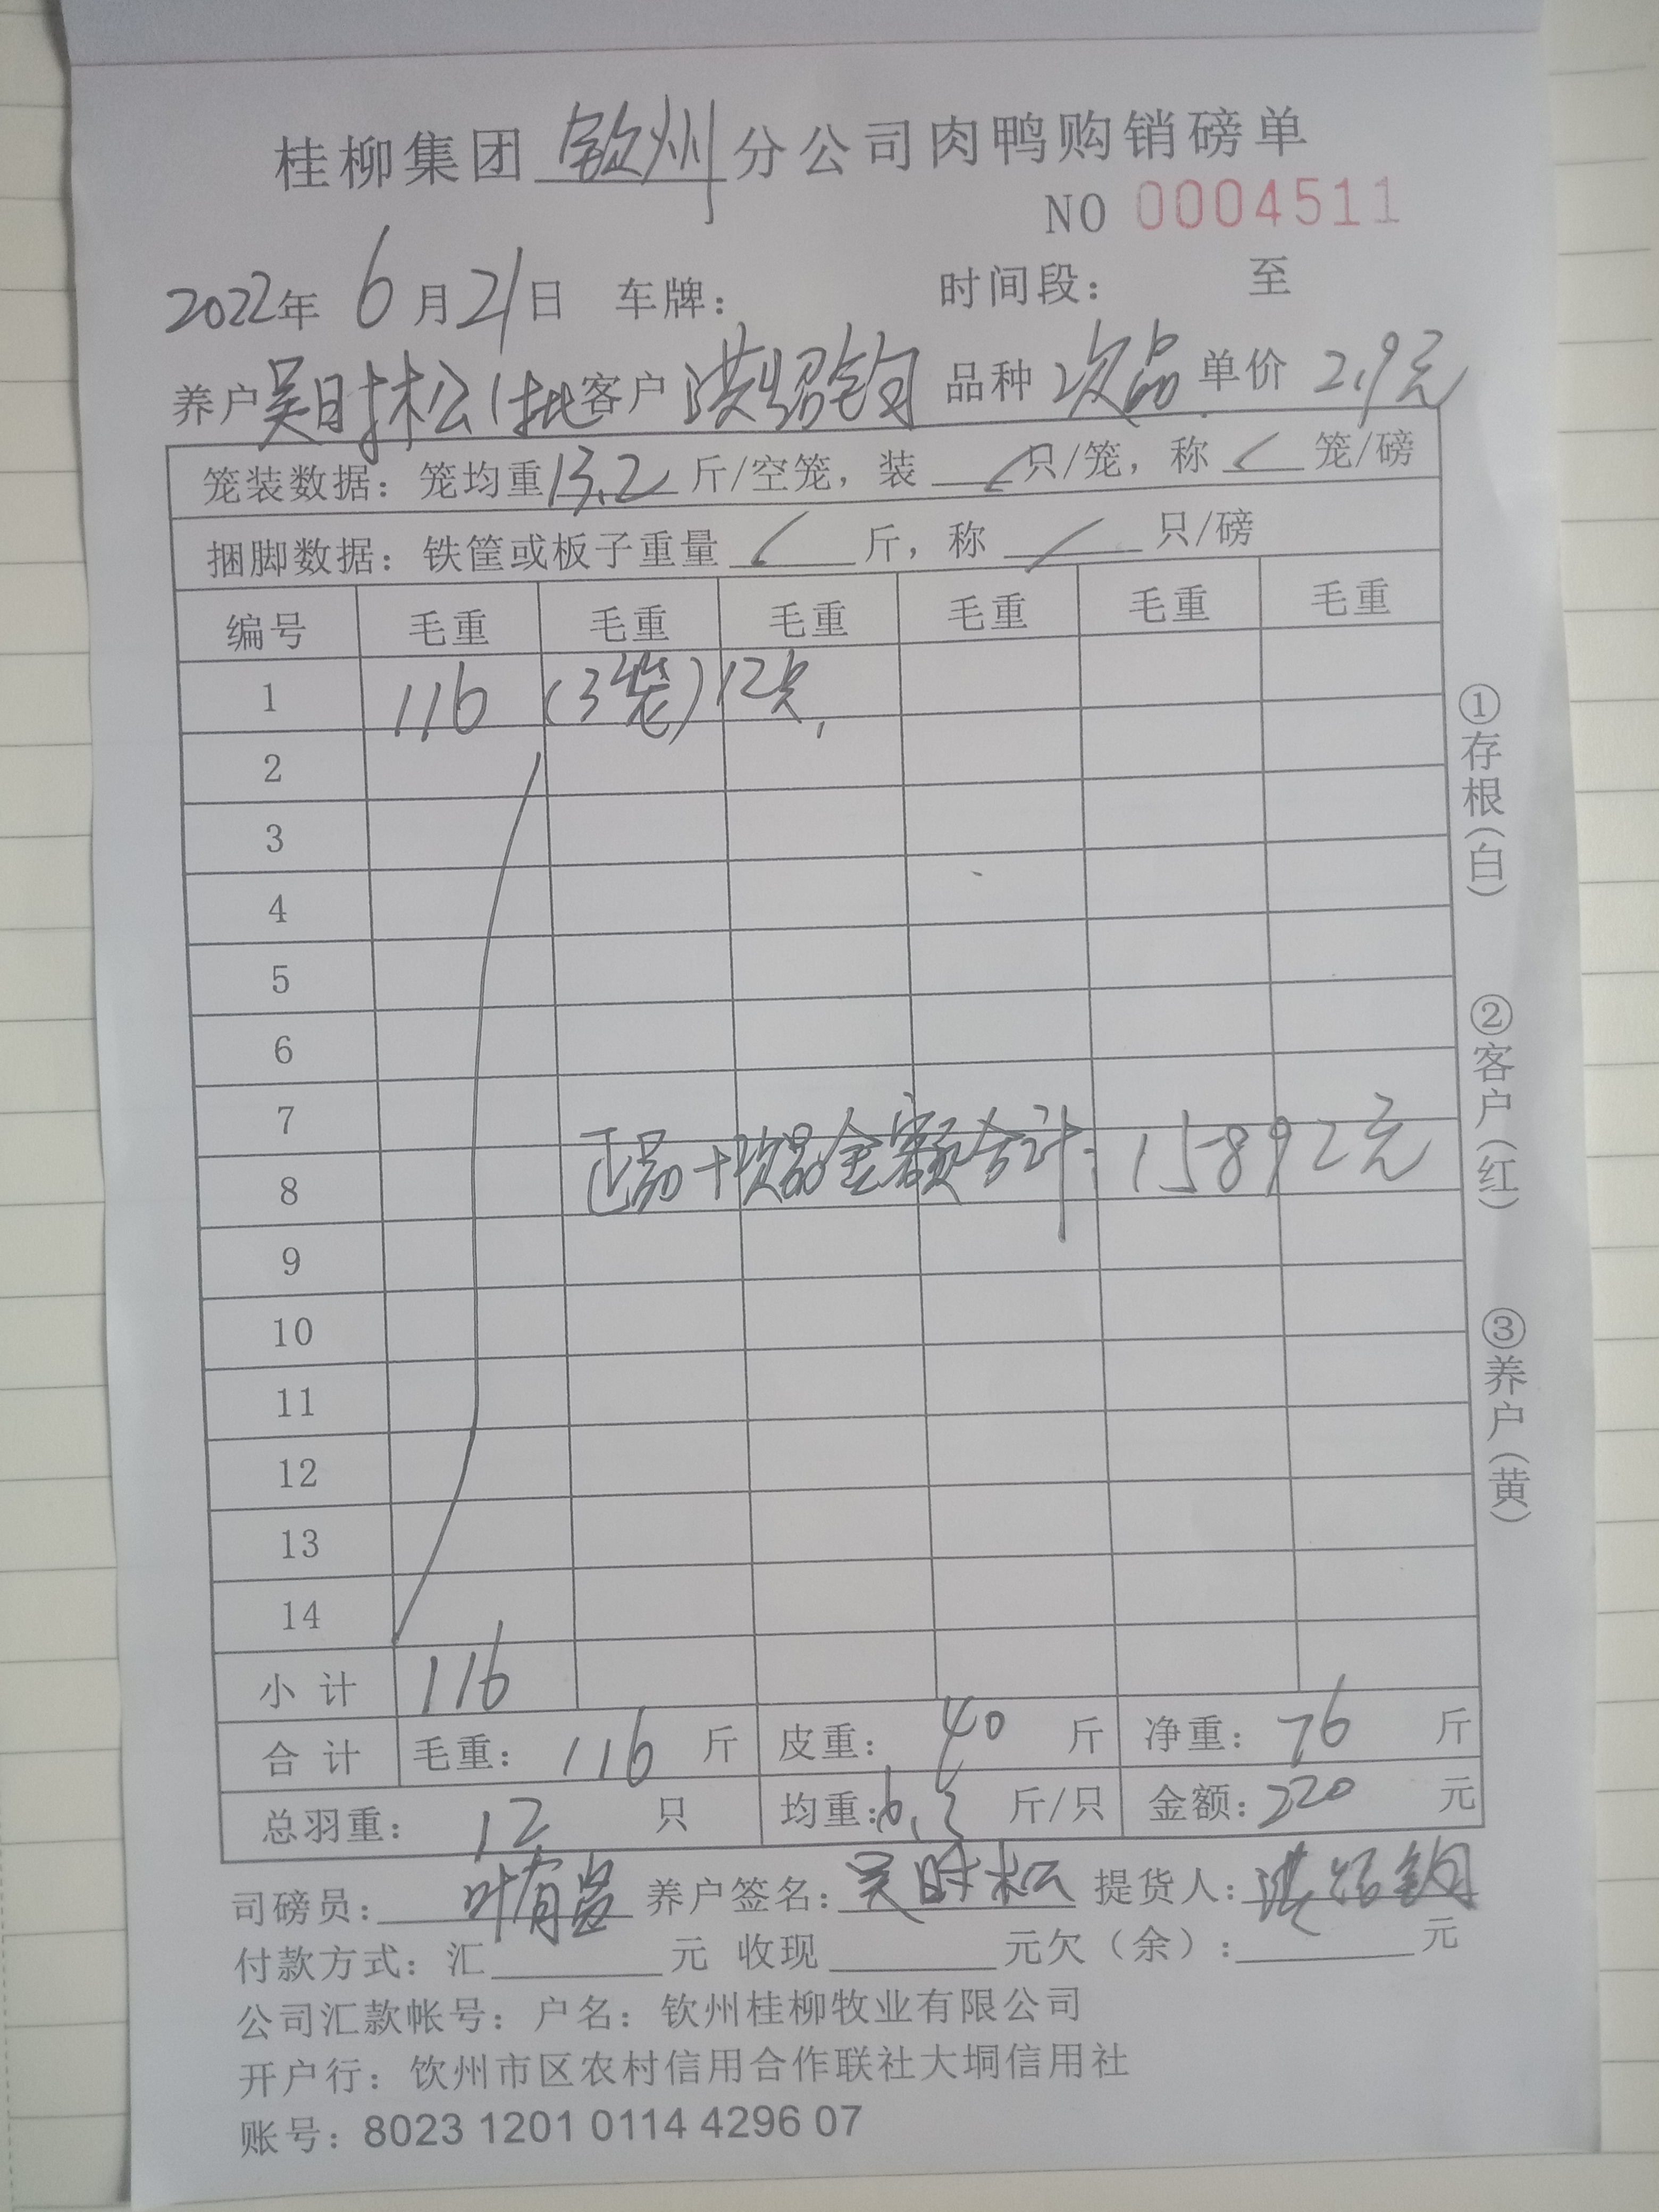 桂柳集团 钦州 分公司肉鸭购销磅单
NO 0004511
2022年 6月21日 车牌: 时间段: 至
养户吴时松1批客户洪绍钧 品种 次品 单价 2.9元
笼装数据: 笼均重13.2斤/空笼, 装 只/笼, 称 笼/磅
捆脚数据: 铁筐或板子重量 斤, 称 只/磅
编号 毛重 毛重 毛重 毛重 毛重 毛重
1 116 (3笼) 12只
2
3
4
5
6
7
8 正品+次品金额合计: 15892元
9
10
11
12
13
14
小计 116
合计 毛重: 116 斤 皮重: 40 斤 净重: 76 斤
总羽重: 12 只 均重:6.3 斤/只 金额: 220 元
司磅员: 叶有 养户签名: 吴时松 提货人: 洪绍钧
付款方式: 汇 元 收现 元欠(余): 元
公司汇款帐号: 户名: 钦州桂柳牧业有限公司
开户行: 钦州市区农村信用合作联社大垌信用社
账号: 8023 1201 0114 4296 07
①存根(白)
②客户(红)
③养户(黄)